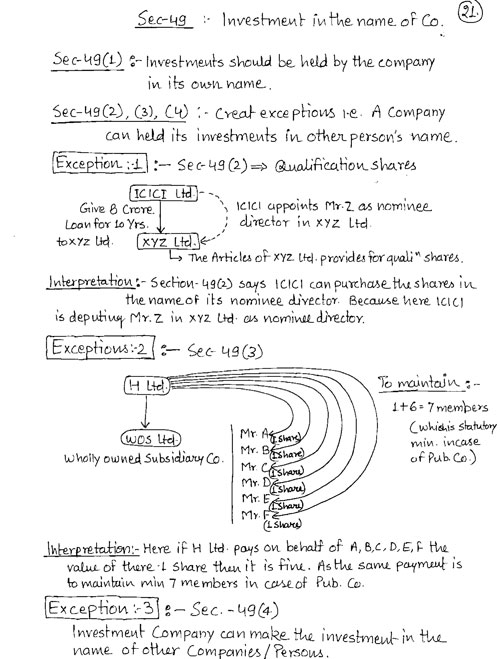 21.
Sec-49 :- Investment in the name of Co.
Sec-49(1) :- Investments should be held by the company
in its own name.
Sec-49(2), (3), (4) :- Creat exceptions i.e. A Company
can held its investments in other person's name.
Exception :-1 :- Sec-49(2) ⇒ Qualification shares
ICICI Ltd.
Give 8 Crore.
Loan for 10 Yrs.
to XYZ Ltd.
XYZ Ltd.
ICICI appoints Mr. Z as nominee
director in XYZ Ltd.
The Articles of XYZ Ltd. provides for quali" shares.
Interpretation:- Section-49(2) says ICICI can purchase the shares in
the name of its nominee director. Because here ICICI
is deputing Mr. Z in XYZ Ltd. as nominee director.
Exceptions:-2 :- Sec-49(3)
H Ltd.
WOS Ltd.
Wholly owned Subsidiary Co.
Mr. A (1 Share)
Mr. B (1 Share)
Mr. C (1 Share)
Mr. D (1 Share)
Mr. E (1 Share)
Mr. F (1 Share)
To maintain :-
1+6=7 members
(which is statutory
min. incase
of Pub. Co.)
Interpretation:- Here if H Ltd. pays on behalf of A, B, C, D, E, F the
value of there 1 share then it is fine. As the same payment is
to maintain min 7 members in case of Pub. Co.
Exception :-3 :- Sec.-49(4)
Investment Company can make the investment in the
name of other Companies/Persons.